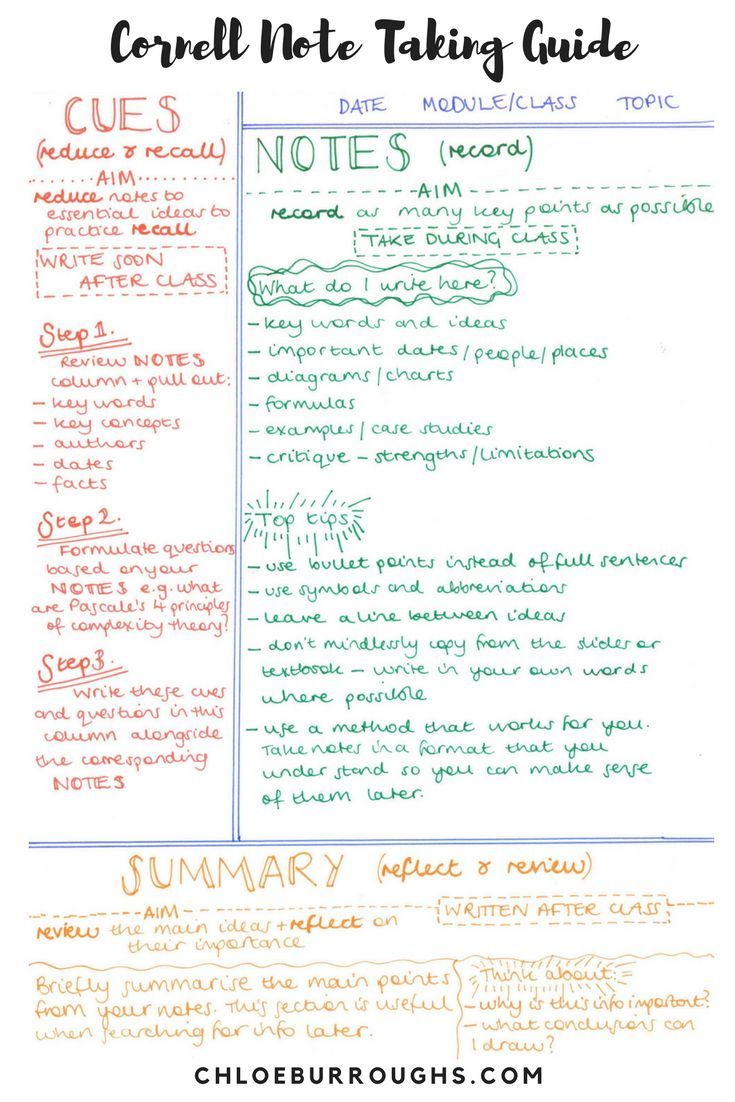 Cornell Note Taking Guide
CUES
(reduce & recall)
AIM
reduce notes to
essential ideas to
practice recall
WRITE SOON
AFTER CLASS
Step 1.
Review NOTES
column + pull out:
- key words
- key concepts
- authors
- dates
- facts
Step 2.
Formulate questions
based on your
NOTES e.g. what
are Pascale's 4 principles
of complexity theory?
Step 3.
Write these cues
and questions in this
column alongside
the corresponding
NOTES
DATE MODULE/CLASS TOPIC
NOTES (record)
AIM
record as many key points as possible
TAKE DURING CLASS
What do I write here?
- key words and ideas
- important dates/people/places
- diagrams/charts
- formulas
- examples/case studies
- critique - strengths/limitations
Top tips
- use bullet points instead of full sentences
- use symbols and abbreviations
- leave a line between ideas
- don't mindlessly copy from the slides or
textbook - write in your own words
where possible
- use a method that works for you.
Take notes in a format that you
understand so you can make sense
of them later.
SUMMARY (reflect & review)
AIM
WRITTEN AFTER CLASS
review the main ideas + reflect on
their importance
Briefly summarise the main points
from your notes. This section is useful
when searching for info later.
Think about:
- why is this info important?
- what conclusions can
I draw?
CHLOEBURROUGHS.COM